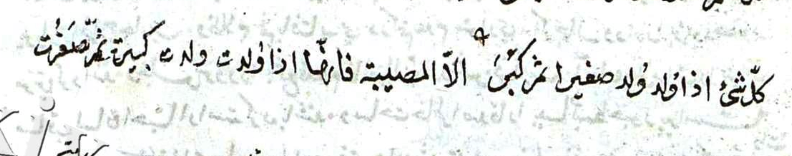 كلّ شئ اذا وُلد وُلد صغيرا ثم كبُر الّا المصيبة فانّها اذا وُلدت ولدت كبيرة ثمّ صغُرت